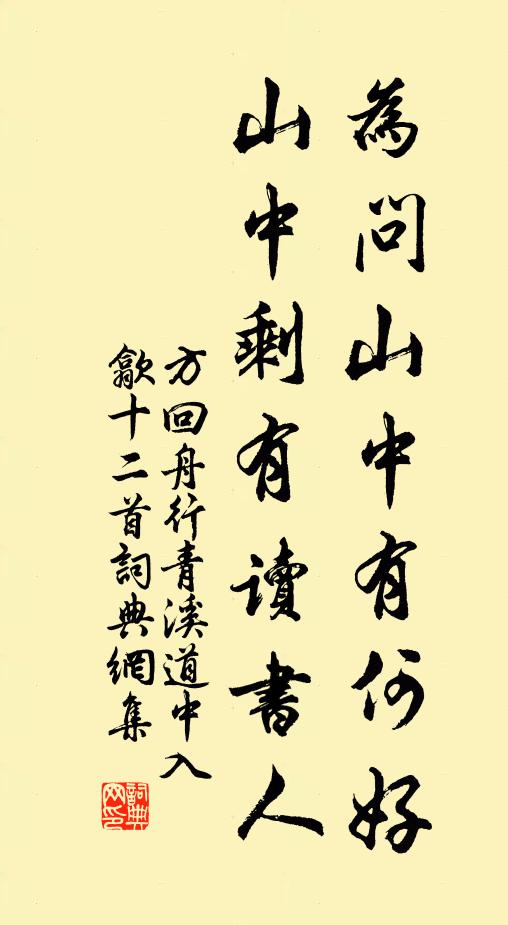 為問山中有何好
山中剩有讀書人
方回舟行青溪道中入
歙十二首詞典網集
詞典
网印